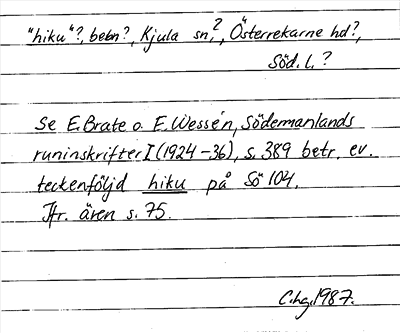 "hiku"?, bebn?, Kjula sn,?, Österrekarne hd?,
Söd. l.?
Se E. Brate o. E. Wessén, Södermanlands
runinskrifter I (1924-36), s. 389 betr. ev.
teckenföljd hiku på Sö 104.
Jfr. även s. 75.
C.hg. 1987.